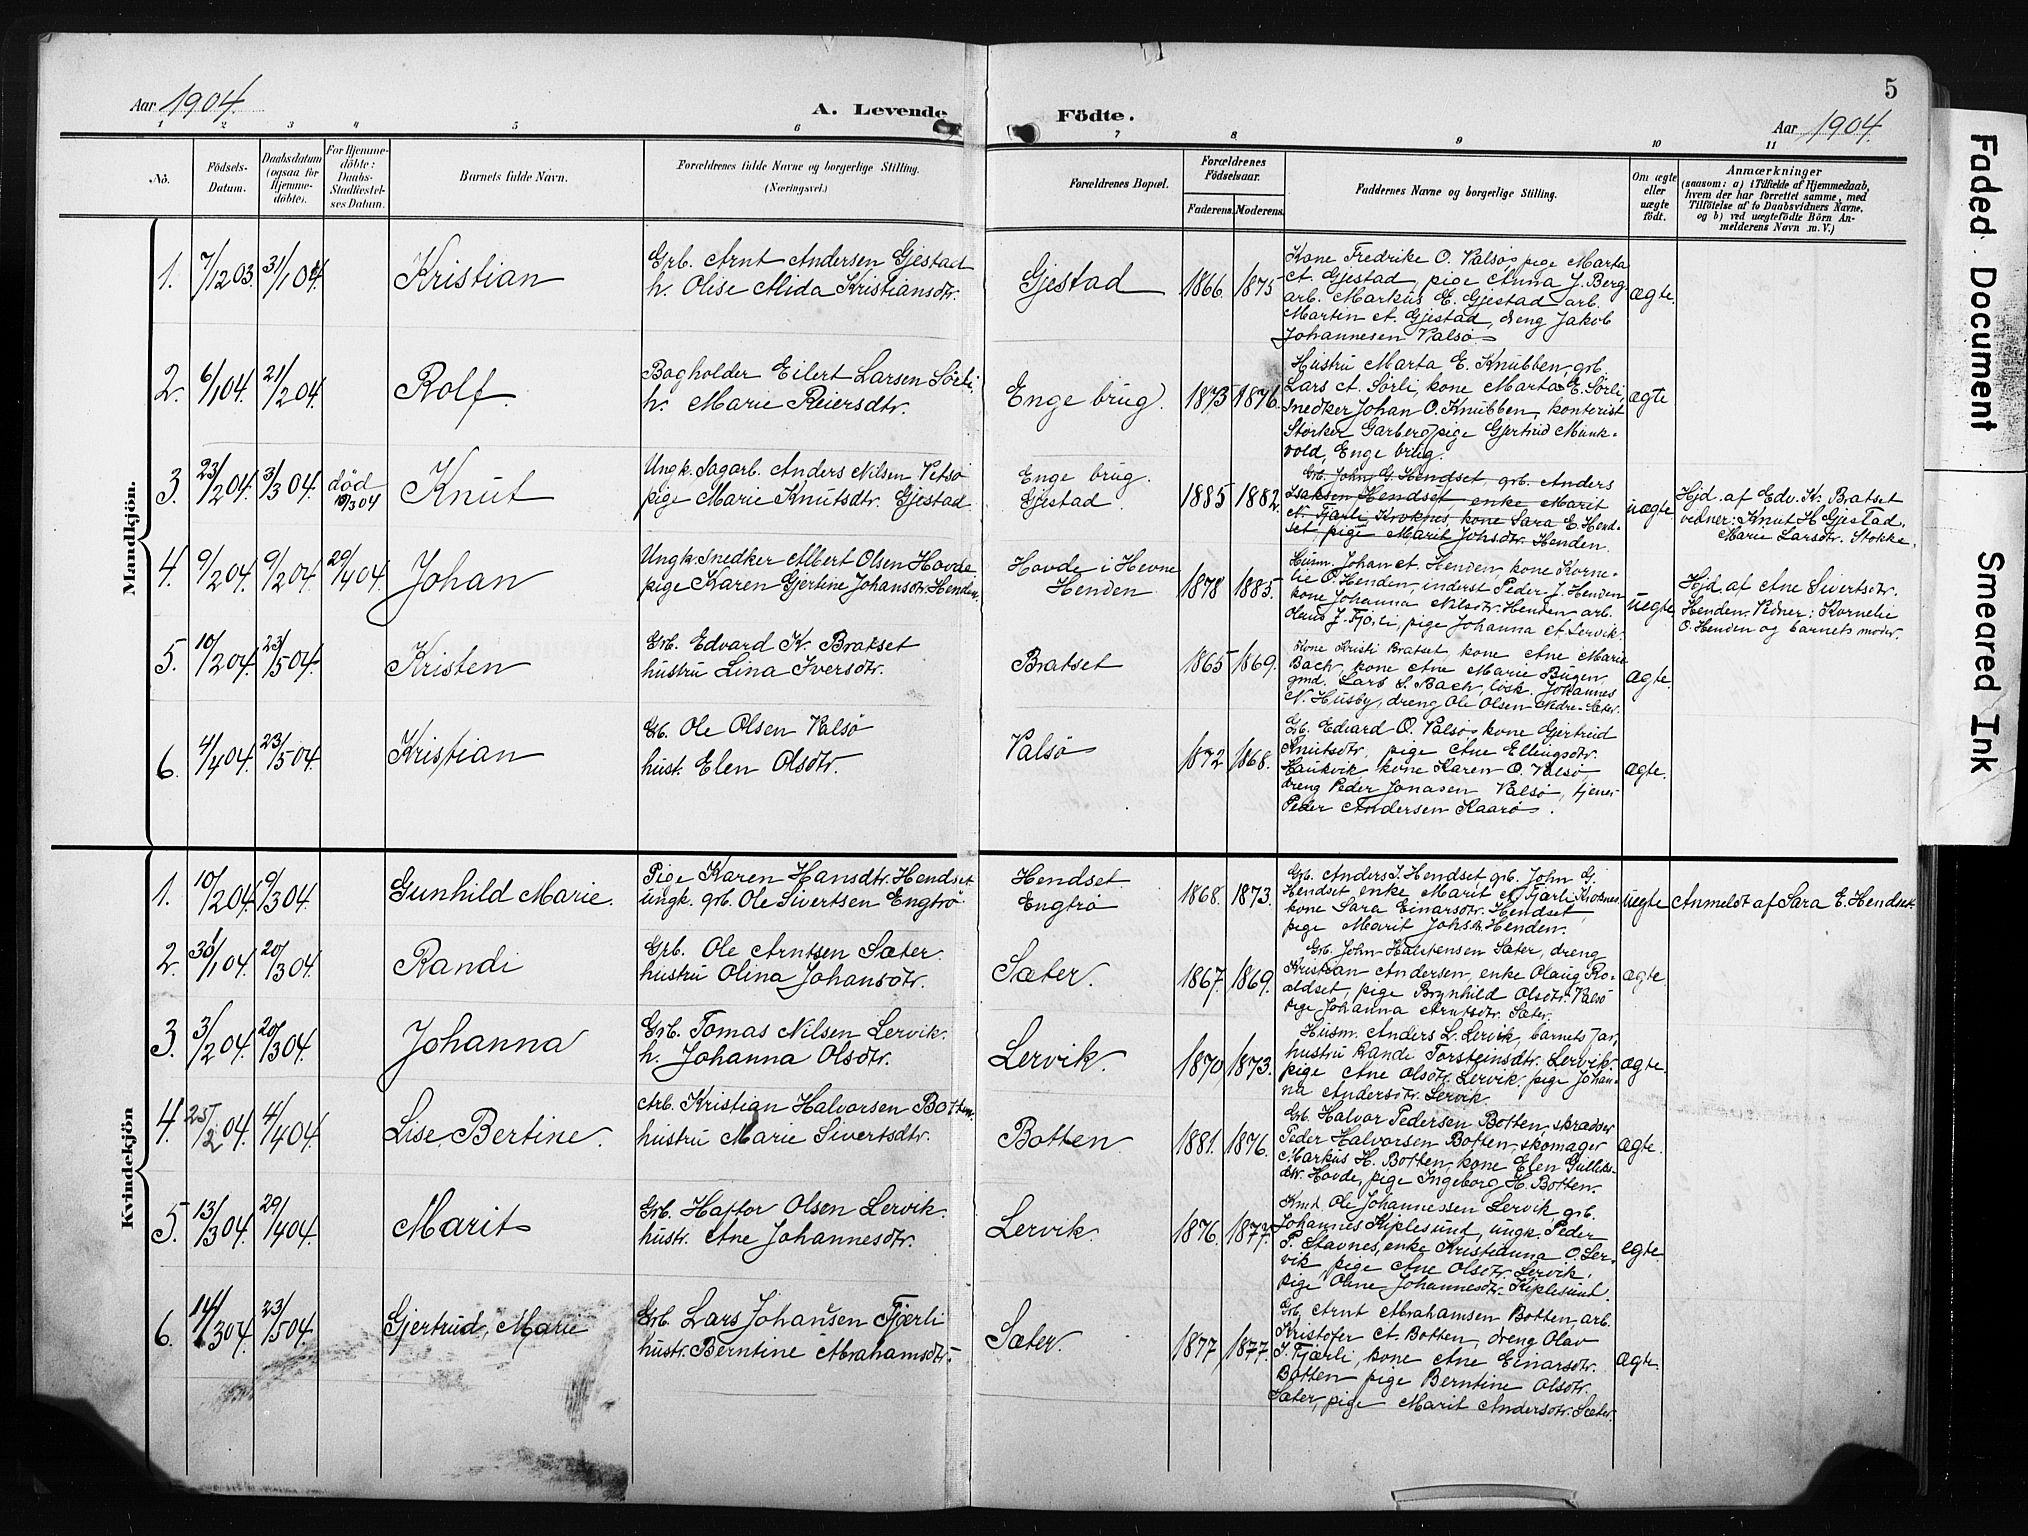 Aar 1904.
A. Levende
Födte.
5
Aar 1904.
1 2 3 4 5 6 7 8. 9 10 11
No.
Födsels-
Datum.
Daabsdatum
(ogsaa for
Hjemme-
döbte).
For Hjemme-
döbte:
Daabs-
Stadfæstel-
ses Datum.
Barnets fulde Navn.
Forældrenes fulde Navne og borgerlige Stilling.
(Næringsvei.)
Forældrenes Bopæl.
Forældrenes
Födselsaar.
Faderens.
Moderens.
Faddernes Navne og borgerlige Stilling.
Om ægte
eller
uægte
födt.
Anmærkninger
(saasom: a) i Tilfælde af Hjemmedaab,
hvem der har forrettet samme, med
Tilföielse af to Daabsvidners Navne,
og b) ved uægtefödte Börn An-
melderens Navn m. V.)
Mandkjön.
1. 7/12 03. 31/1 04. Kristian
Grb. Arnt Andersen Gjestad
h. Olise Alida Kristiansdtr.
Gjestad 1866. 1875
Kone Fredrike O. Valsø, pige Marta
A. Gjestad, pige Anna J. Berg,
arb. Markus E. Gjestad, arb.
Marten A. Gjestad, dreng Jakob
Johannesen Valsø
ægte.
2. 6/1 04. 21/2 04. Rolf.
Bogholder Eilert Larsen Sörli
h. Marie Reiersdtr.
Enge brug. 1873 1876.
Hustru Marta E. Knubben, grb.
Lars A. Sörli, kone Marta E. Sörli,
snedker Johan O. Knubben, kontorist
Storker Garberg, pige Gjertrud Munk-
vold, Enge brug.
ægte
3. 23/2 04. 3/3 04. død
10/3 04
Knut
Ungk. sagarb. Anders Nilsen Vetsø
pige Marie Knutsdtr. Gjestad
Enge brug.
Gjestad.
1885 1882.
Grb. John G. Hendset, grb. Anders
Isaksen Hendset, enke Marit
N. Fjærli Kroknes, kone Sara E. Hend-
set, pige Marit Johsdtr. Henden.
uægte.
Hjd. af Edv. K. Bratset
vidner: Knut H. Gjestad.
Marie Larsdtr. Stokke.
4. 9/2 04. 9/2 04. 29/4 04. Johan
Ungk. snedker Albert Olsen Hovde
pige Karen Gjertine Johansdtr. Henden.
Hovde i Hevne
Henden
1878 1885.
Husm. Johan A. Henden, kone Korne-
lie O. Henden, inderst Peder J. Henden
kone Johanna Nilsdtr. Henden, arb.
Olaus J. Fjærli, pige Johanna A. Lervik.
uegte.
Hjd. af Ane Sivertsdtr.
Henden. Vidner: Kornelie
O. Henden og barnets moder.
5. 10/2 04. 23/5 04. Kristen
Grb. Edvard K. Bratset
hustru Lina Iversdtr.
Bratset 1865 1869.
Kone Kristi Bratset, kone Ane Marie
Bach, kone Ane Marie Bugen,
gmd. Lars S. Bach, løsk. Johannes
N. Husby, dreng Ole Olsen Nedre-Sæter.
ægte.
6. 4/4 04. 23/5 04. Kristian
Grb. Ole Olsen Valsø
hust. Elen Olsdtr.
Valsø 1872 1868.
Grb. Edvard O. Valsø, kone Gjertrud
Knutsdtr., pige Ane Ellingsdtr.
Haukvik, kone Karen O. Valsø
dreng Peder Jonasen Valsø, tjener
Peder Andersen Kaarø.
ægte.
Kvindekjön
1. 10/2 04. 9/3 04. Gunhild Marie.
Pige Karen Hansdtr. Hendset.
ungk. grb. Ole Sivertsen Engtrø
Hendset.
Engtrø
1868. 1873.
Grb. Anders I. Hendset, grb. John G.
Hendset, enke Marit N. Fjærli Kroknes
kone Sara Einarsdtr. Hendset
pige Marit Johsdtr. Henden.
uegte
Anmeldt af Sara E. Hendset.
2. 30/1 04. 20/3 04. Randi
Grb. Ole Arntsen Sæter.
hustru Olina Johansdtr.
Sæter. 1867. 1869.
Grb. John Halstensen Sæter, dreng
Kristian Andersen, enke Olaug Ro-
aldset, pige Brynhild Olsdtr. Valsø
pige Johanna Arntsdtr. Sæter.
ægte.
3. 3/2 04. 20/3 04. Johanna
Grb. Tomas Nilsen Lervik.
h. Johanna Olsdtr.
Lervik. 1870 1873.
Husm. Anders L. Lervik, barnets far,
hustru Randi Torsteinsdtr. Lervik.
pige Ane Olsdtr. Lervik, pige Johan-
na Andersdtr. Lervik.
ægte.
4. 25/2 04. 4/4 04. Lise Bertine.
Arb. Kristian Halvorsen Botten.
hustru Marie Sivertsdtr.
Botten 1881. 1876.
Grb. Halvor Pedersen Botten, skrædder
Peder Halvorsen Botten, skomager
Markus H. Botten, kone Elen Gulliks-
dtr. Hovde, pige Ingeborg H. Botten.
ægte.
5. 13/3 04. 29/4 04. Marit
Grb. Haftor Olsen Lervik.
hustr. Ane Johannesdtr.
Lervik. 1876. 1877
Kmd. Ole Johannessen Lervik, grb.
Johannes Kiplesund, ungk. Peder
P. Stavnes, enke Kristianna O. Ler-
vik, pige Ane Olsdtr. Lervik,
pige Oline Johannesdtr. Kiplesund.
egte.
6. 14/3 04. 23/5 04. Gjertrud Marie
Grb. Lars Johansen Fjærli
hustr. Berntine Abrahamsdtr.
Sæter. 1877 1877.
Grb. Arnt Abrahamsen Botten, arb.
Kristofer A. Botten, dreng Olav
J. Fjærli, kone Ane Einarsdtr.
Botten, pige Berntine Olsdtr.
Sæter, pige Marit Andersdtr. Sæter.
ægte.
Faded Document
Smeared Ink